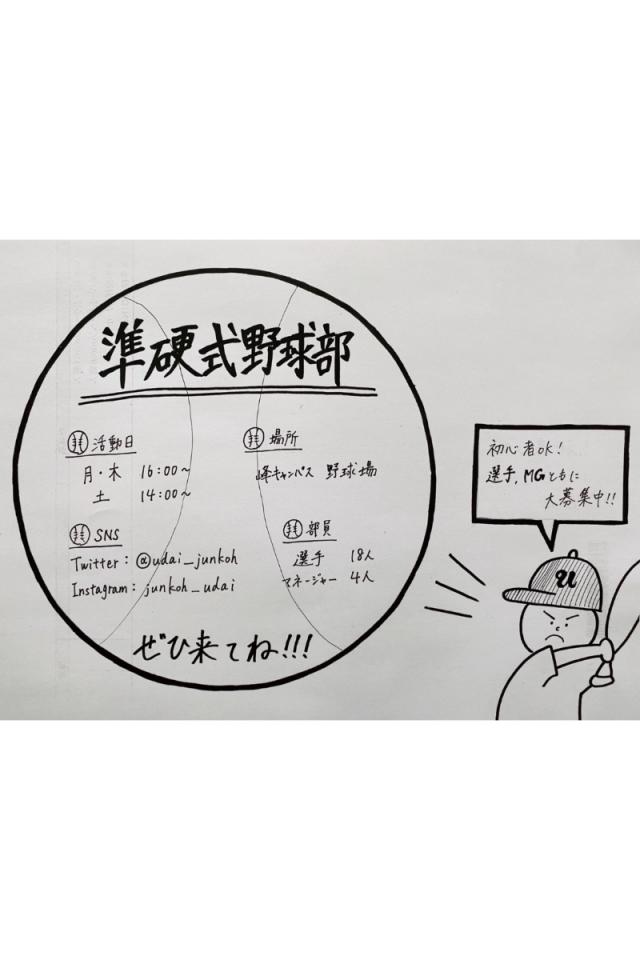 準硬式野球部
活動日
月・木 16:00~
土 14:00~
場所
峰キャンパス 野球場
SNS
Twitter: @udai_junkoh
Instagram: junkoh_udai
部員
選手 18人
マネージャー 4人
ぜひ来てね!!!
初心者ok!
選手,MGともに
大募集中!!
U